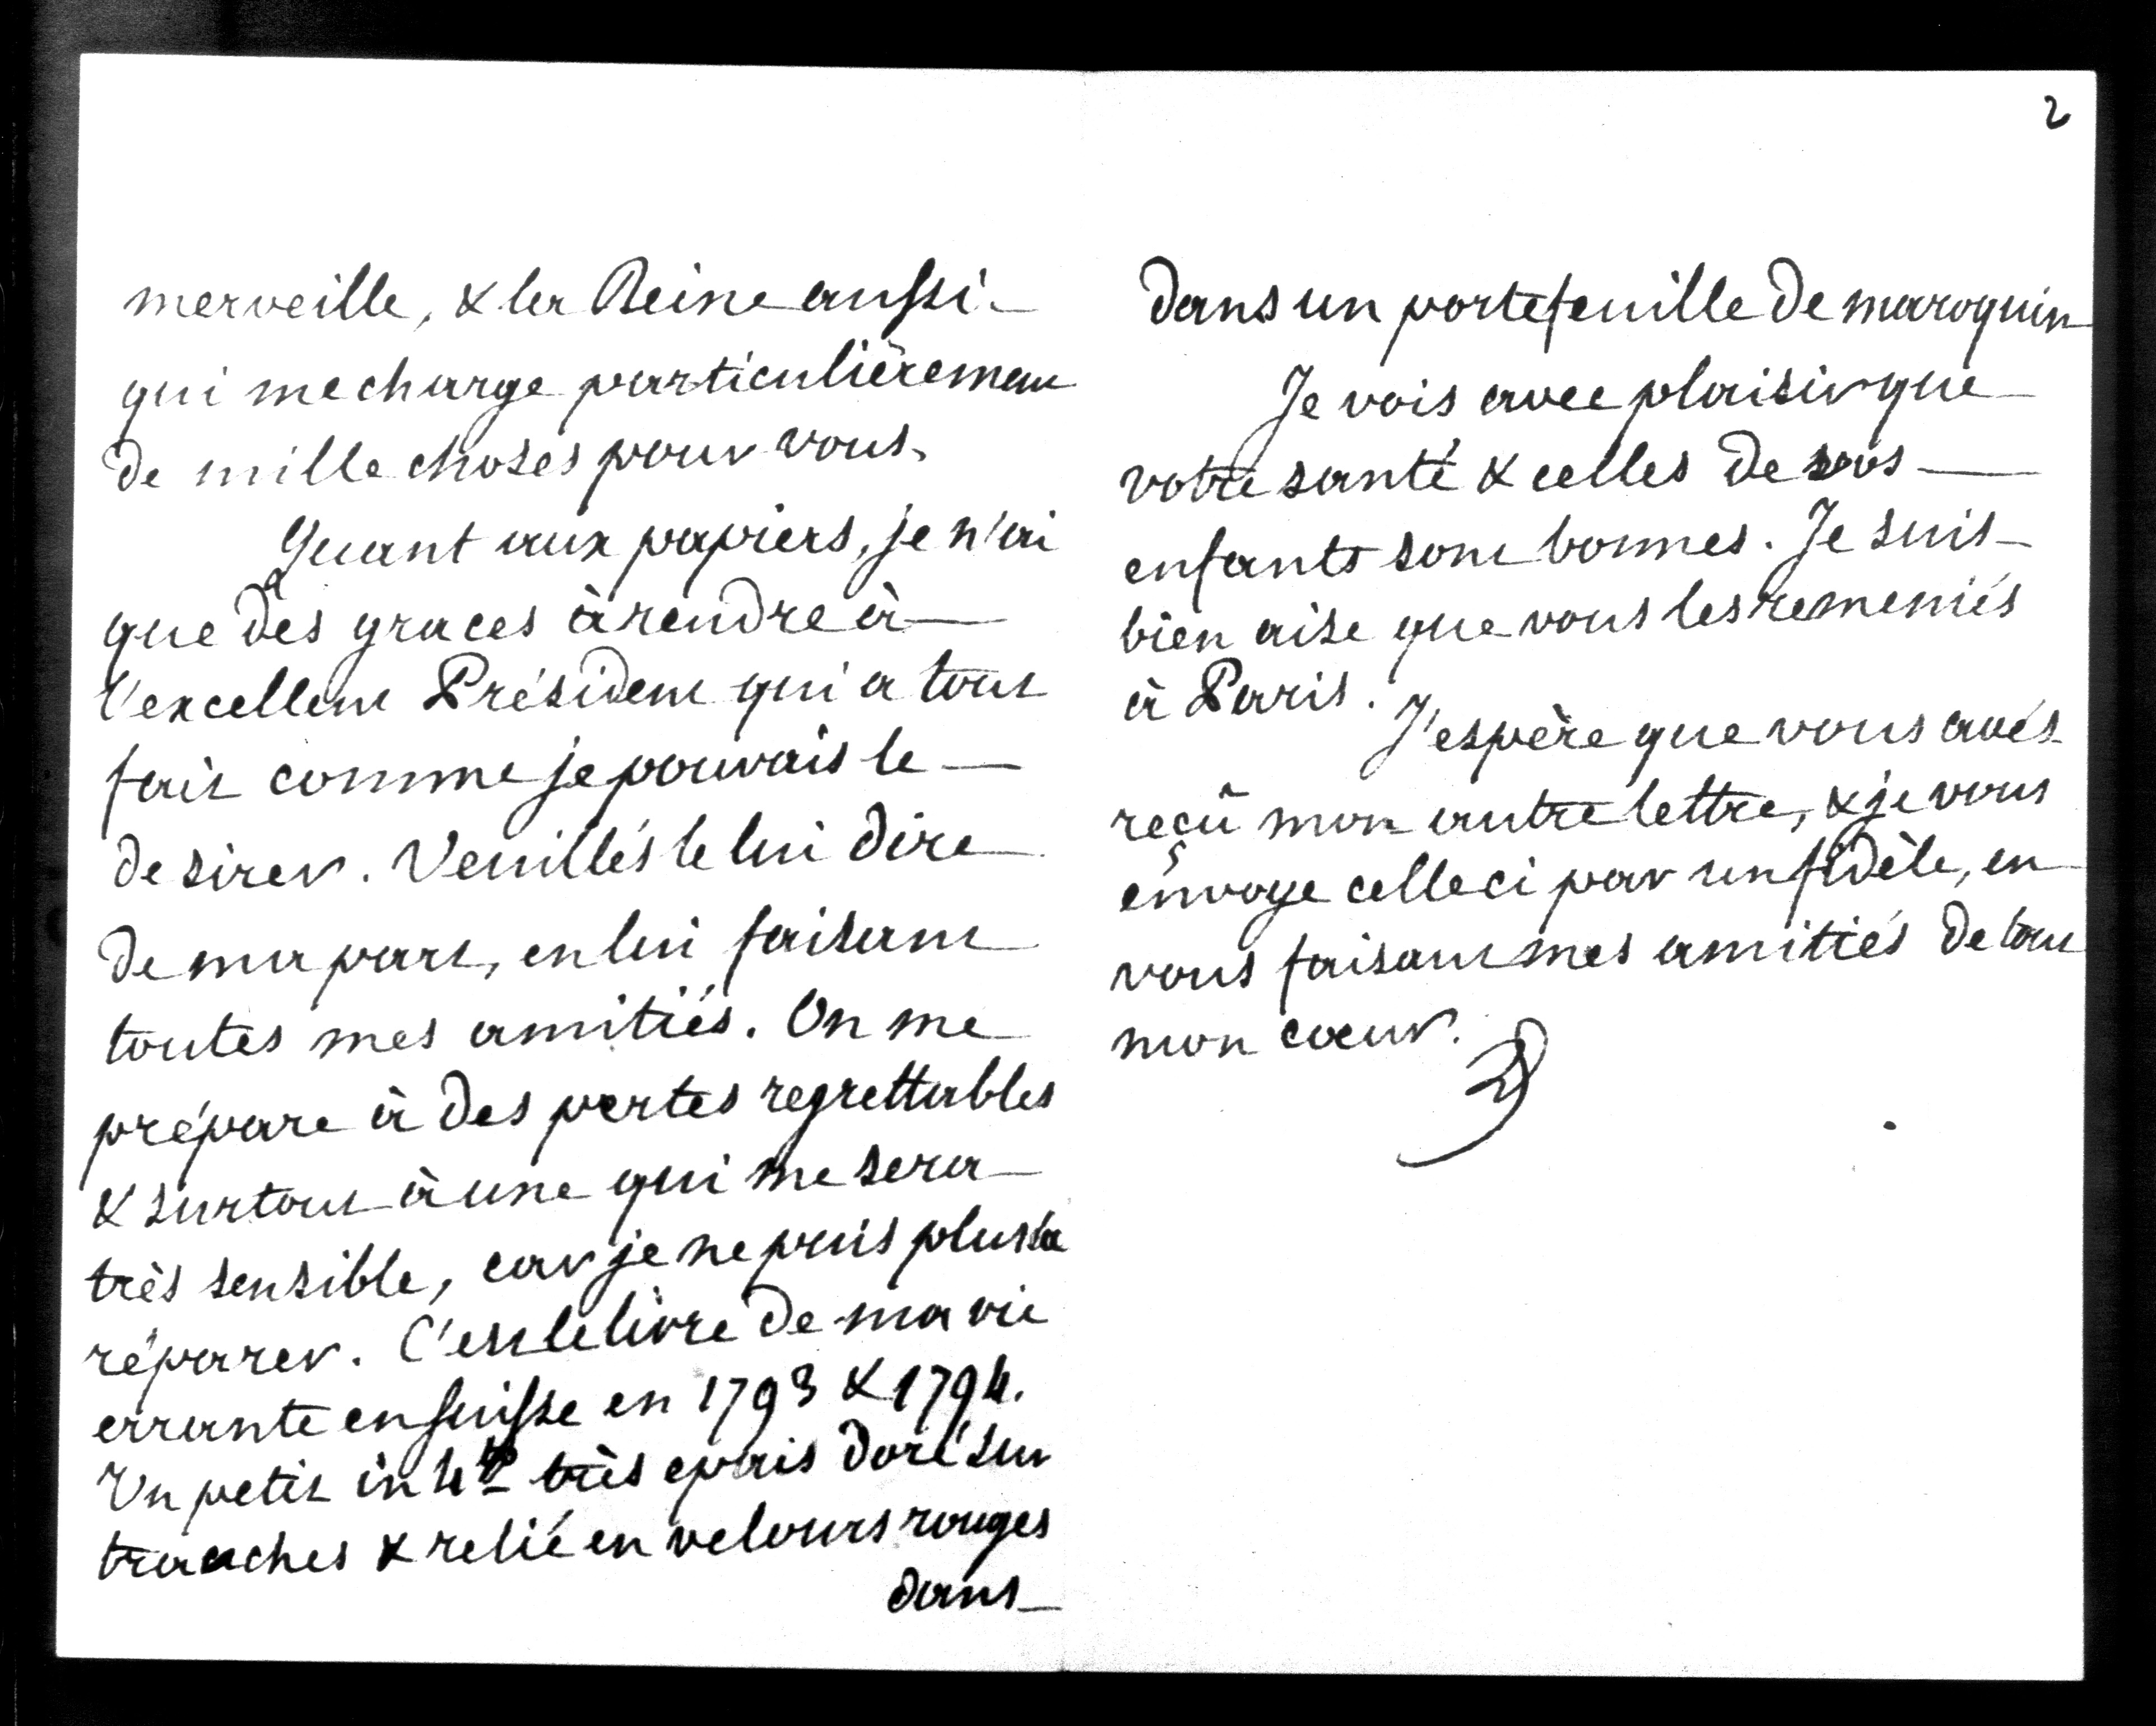 merveille, & la Reine aussi
qui me charge particulièrement
de mille choses pour vous.
Quant aux papiers, je n'ai
que des graces à rendre à
l'excellent Président qui a tout
fait comme je pouvais le
desirer. Veuillés le lui dire
de ma part, en lui faisant
toutes mes amitiés. On me
prépare à des pertes regrettables
& surtout à une qui me sera
très sensible, car je ne puis plus la
réparer. C'est le livre de ma vie
errante en Suisse en 1793 & 1794.
Un petit in 4to très epais doré sur
tranches & relié en velours rouges
dans
2
dans un portefeuille de maroquin
Je vois avec plaisir que
votre santé & celles de vos
enfants sont bonnes. Je suis
bien aise que vous les remeniés
à Paris.
J'espère que vous avés
reçû mon autre lettre, & je vous
envoye celle ci par un fidèle, en
vous faisant mes amitiés de tout
mon cœur.